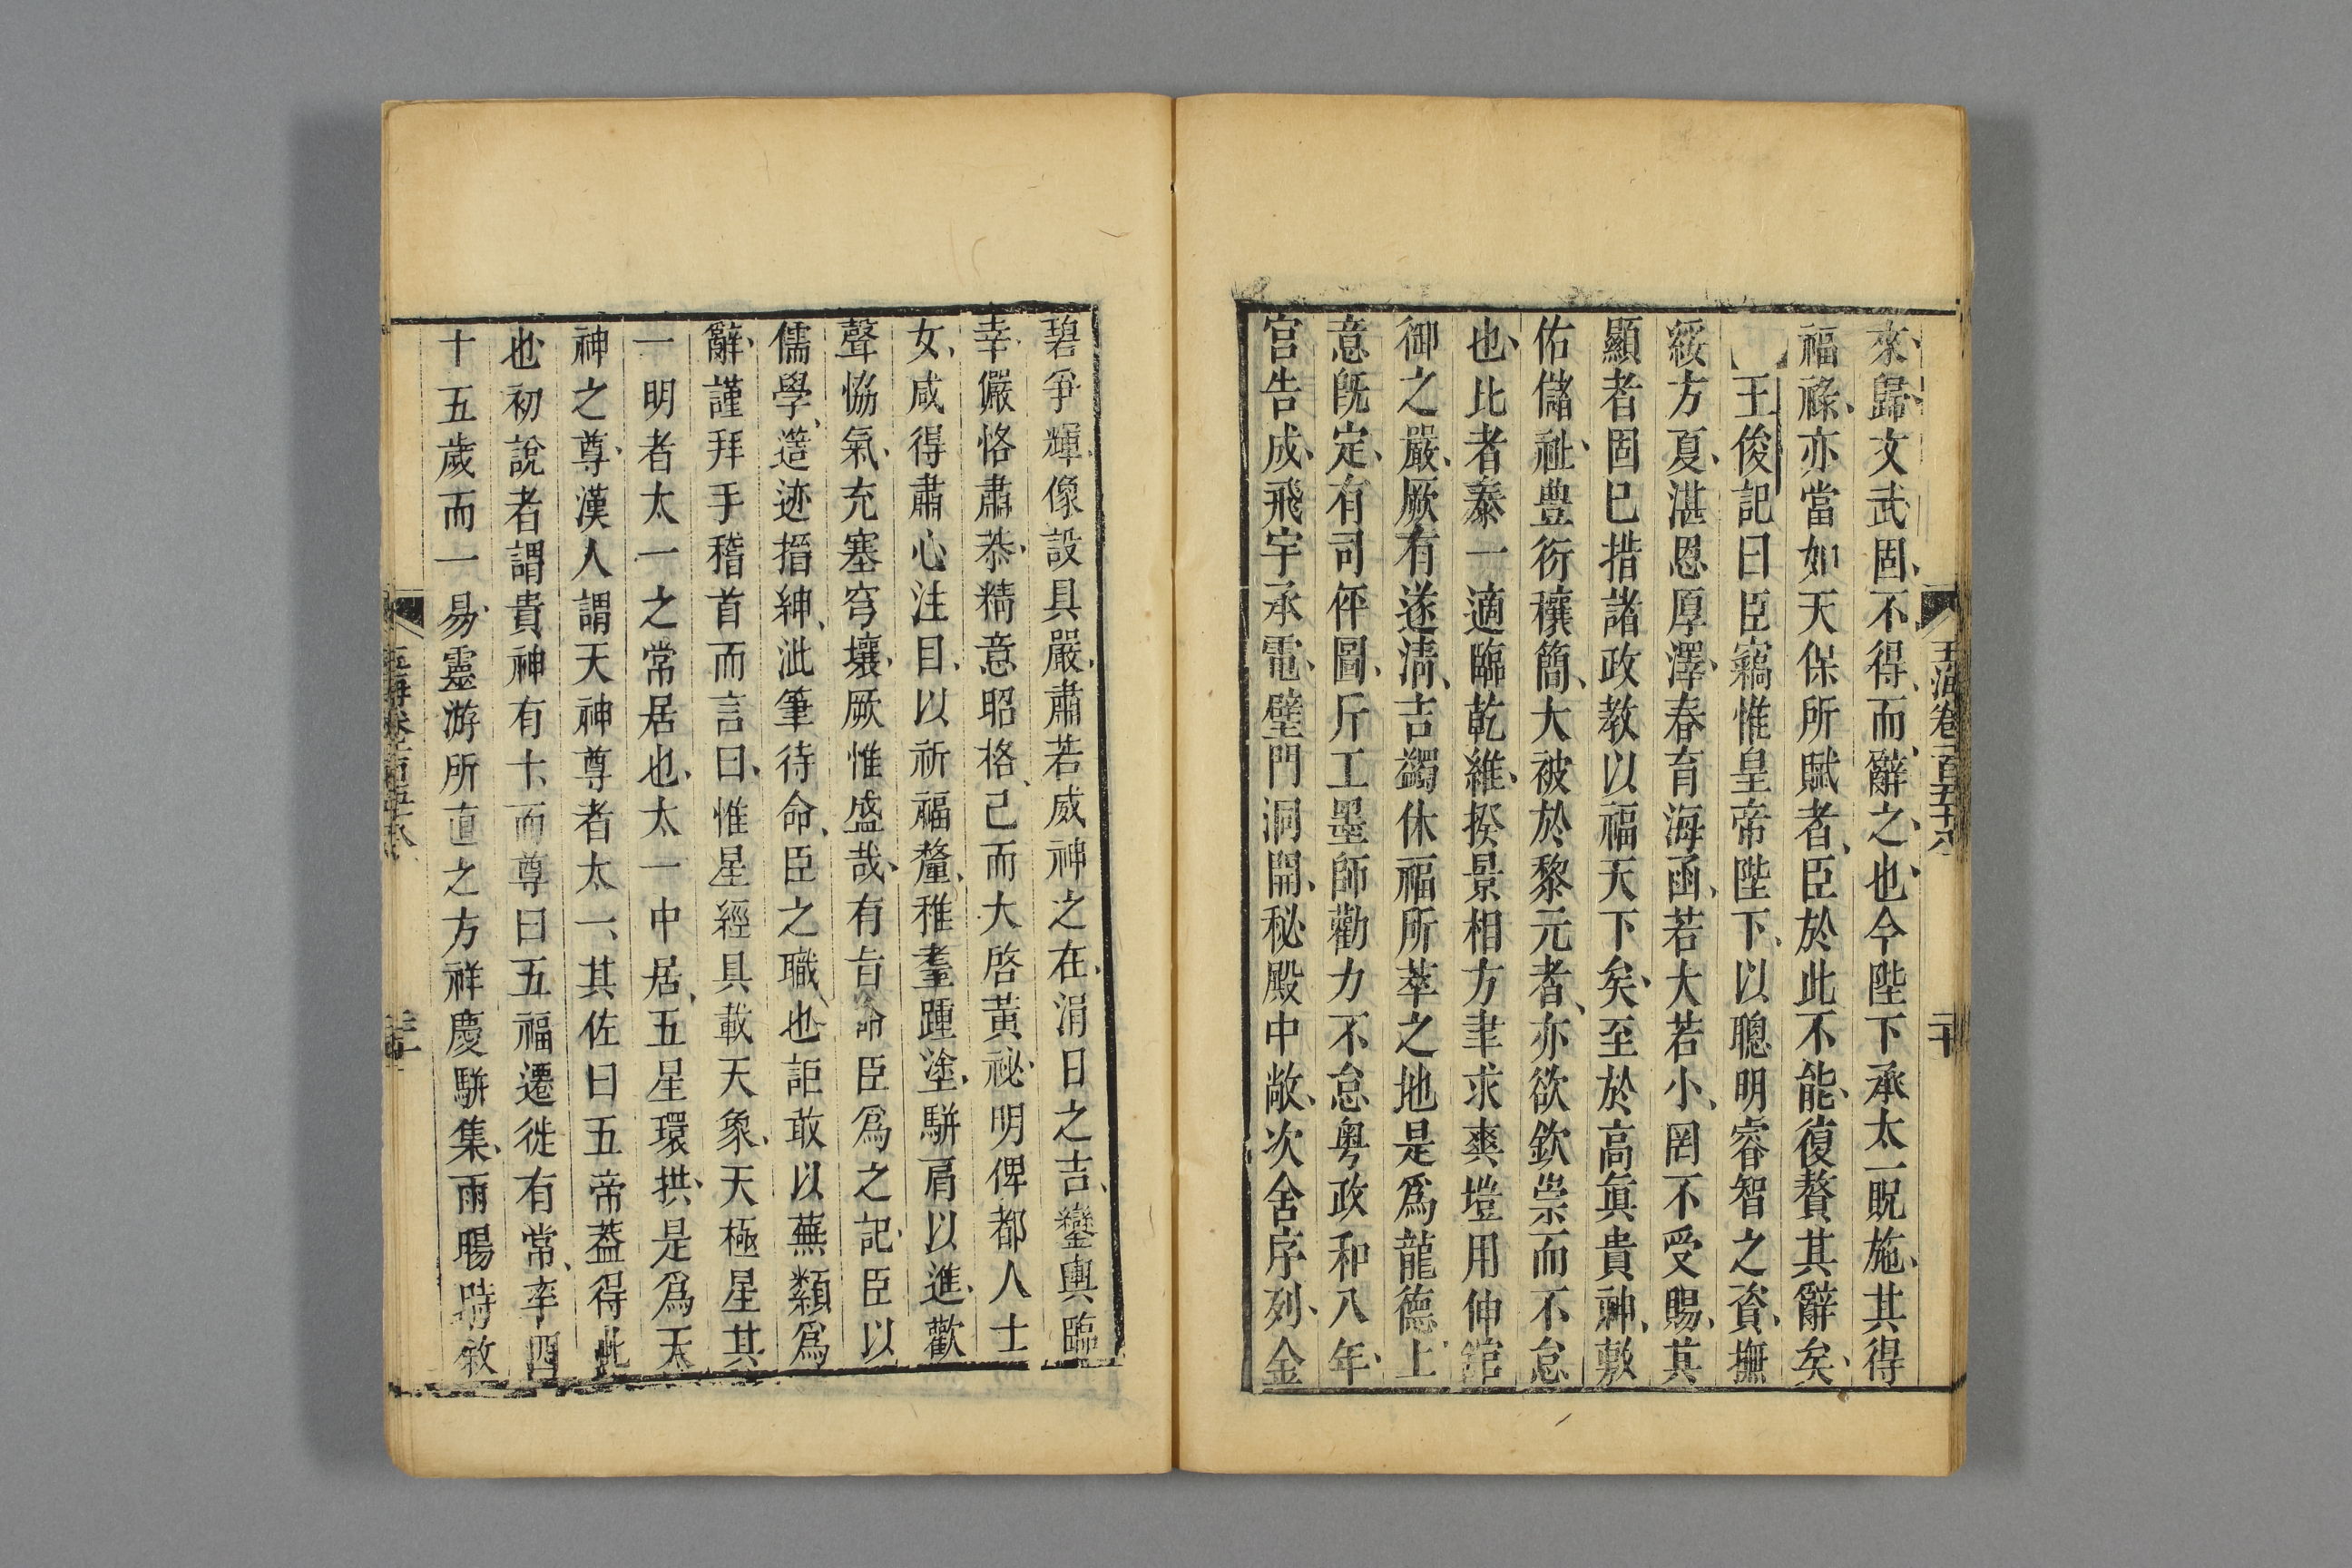 來歸文武固不得而辭之也今陛下承太一貺施其得
福祿亦當如天保所賦者臣於此不能復贅其辭矣
王俊記曰臣竊惟皇帝陛下以聰明睿智之資撫
綏方夏湛恩厚澤春育海函若大若小罔不受賜其
顯者固已措諸政教以福天下矣至於高眞貴神敷
佑儲祉豊衍穰簡大被於黎元者亦欲欽崇而不怠
也比者泰一適臨乾維揆景相方聿求爽塏用伸館
御之嚴厥有遂淸吉蠲休福所萃之地是爲龍德上
意旣定有司伻圖斤工墨師勸力不怠粤政和八年
宮告成飛宇承電璧門洞開秘殿中敞次舍序列金
玉海卷一百五十八
二十
碧爭輝像設具嚴肅若威神之在涓日之吉鑾輿臨
幸儼恪肅恭精意昭格已而大啓黃祕明俾都人士
女咸得肅心注目以祈福釐稚耋踵塗駢肩以進歡
聲恊氣充塞穹壤厥惟盛哉有旨命臣爲之記臣以
儒學簉迹搢紳泚筆待命臣之職也詎敢以蕪纇爲
辭謹拜手稽首而言曰惟星經具載天象天極星其
一明者太一之常居也太一中居五星環拱是爲天
神之尊漢人謂天神尊者太一其佐曰五帝葢得此
也初說者謂貴神有十而尊曰五福遷徙有常率四
十五歲而一易靈游所直之方祥慶駢集雨暘時敘
玉海卷一百五十八